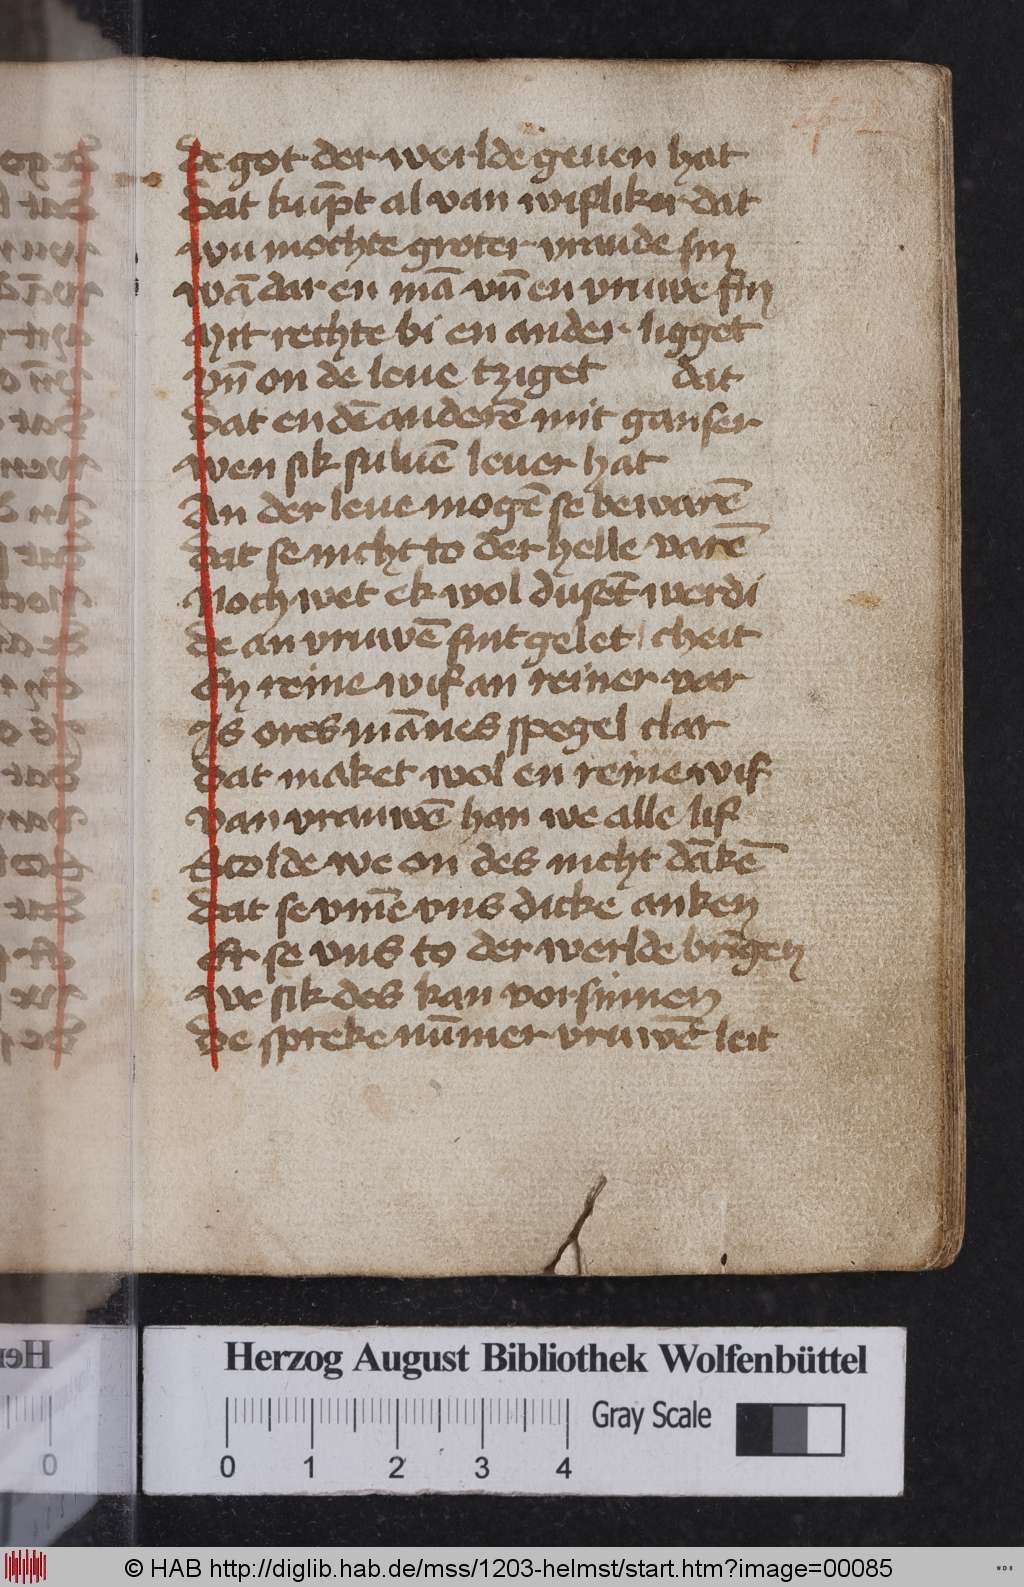 de got der werlde geuen hat
dat kūpt al van wifliker dat
wu mochte groter vraude sin
wā dar en mā vn̄ en vruwe fin
Mit rechte bi en ander ligget
vn̄ on de leue tziget dat
dat en dē anderē mit ganser
wen sik suluē leuer hat
An der leue mogē se bewarē
dat se nicht to der helle varē
Noch wet ek wol dusēt werdi
de an vruwē sint gelet cheit
Eyn reine wif an reiner var
Is ores mānes spegel clar
dat maket wol en reine wif
van vrauwē han we alle lif
Scolde we on des nicht dākē
dat se vmē vns dicke anken
Er se vns to der werlde brīgen
We sik des kan vorsinnen
de spreke nūmer vruwē leit
Herzog August Bibliothek Wolfenbüttel
Gray Scale
0 1 2 3 4
0
© HAB http://diglib.hab.de/mss/1203-helmst/start.htm?image=00085